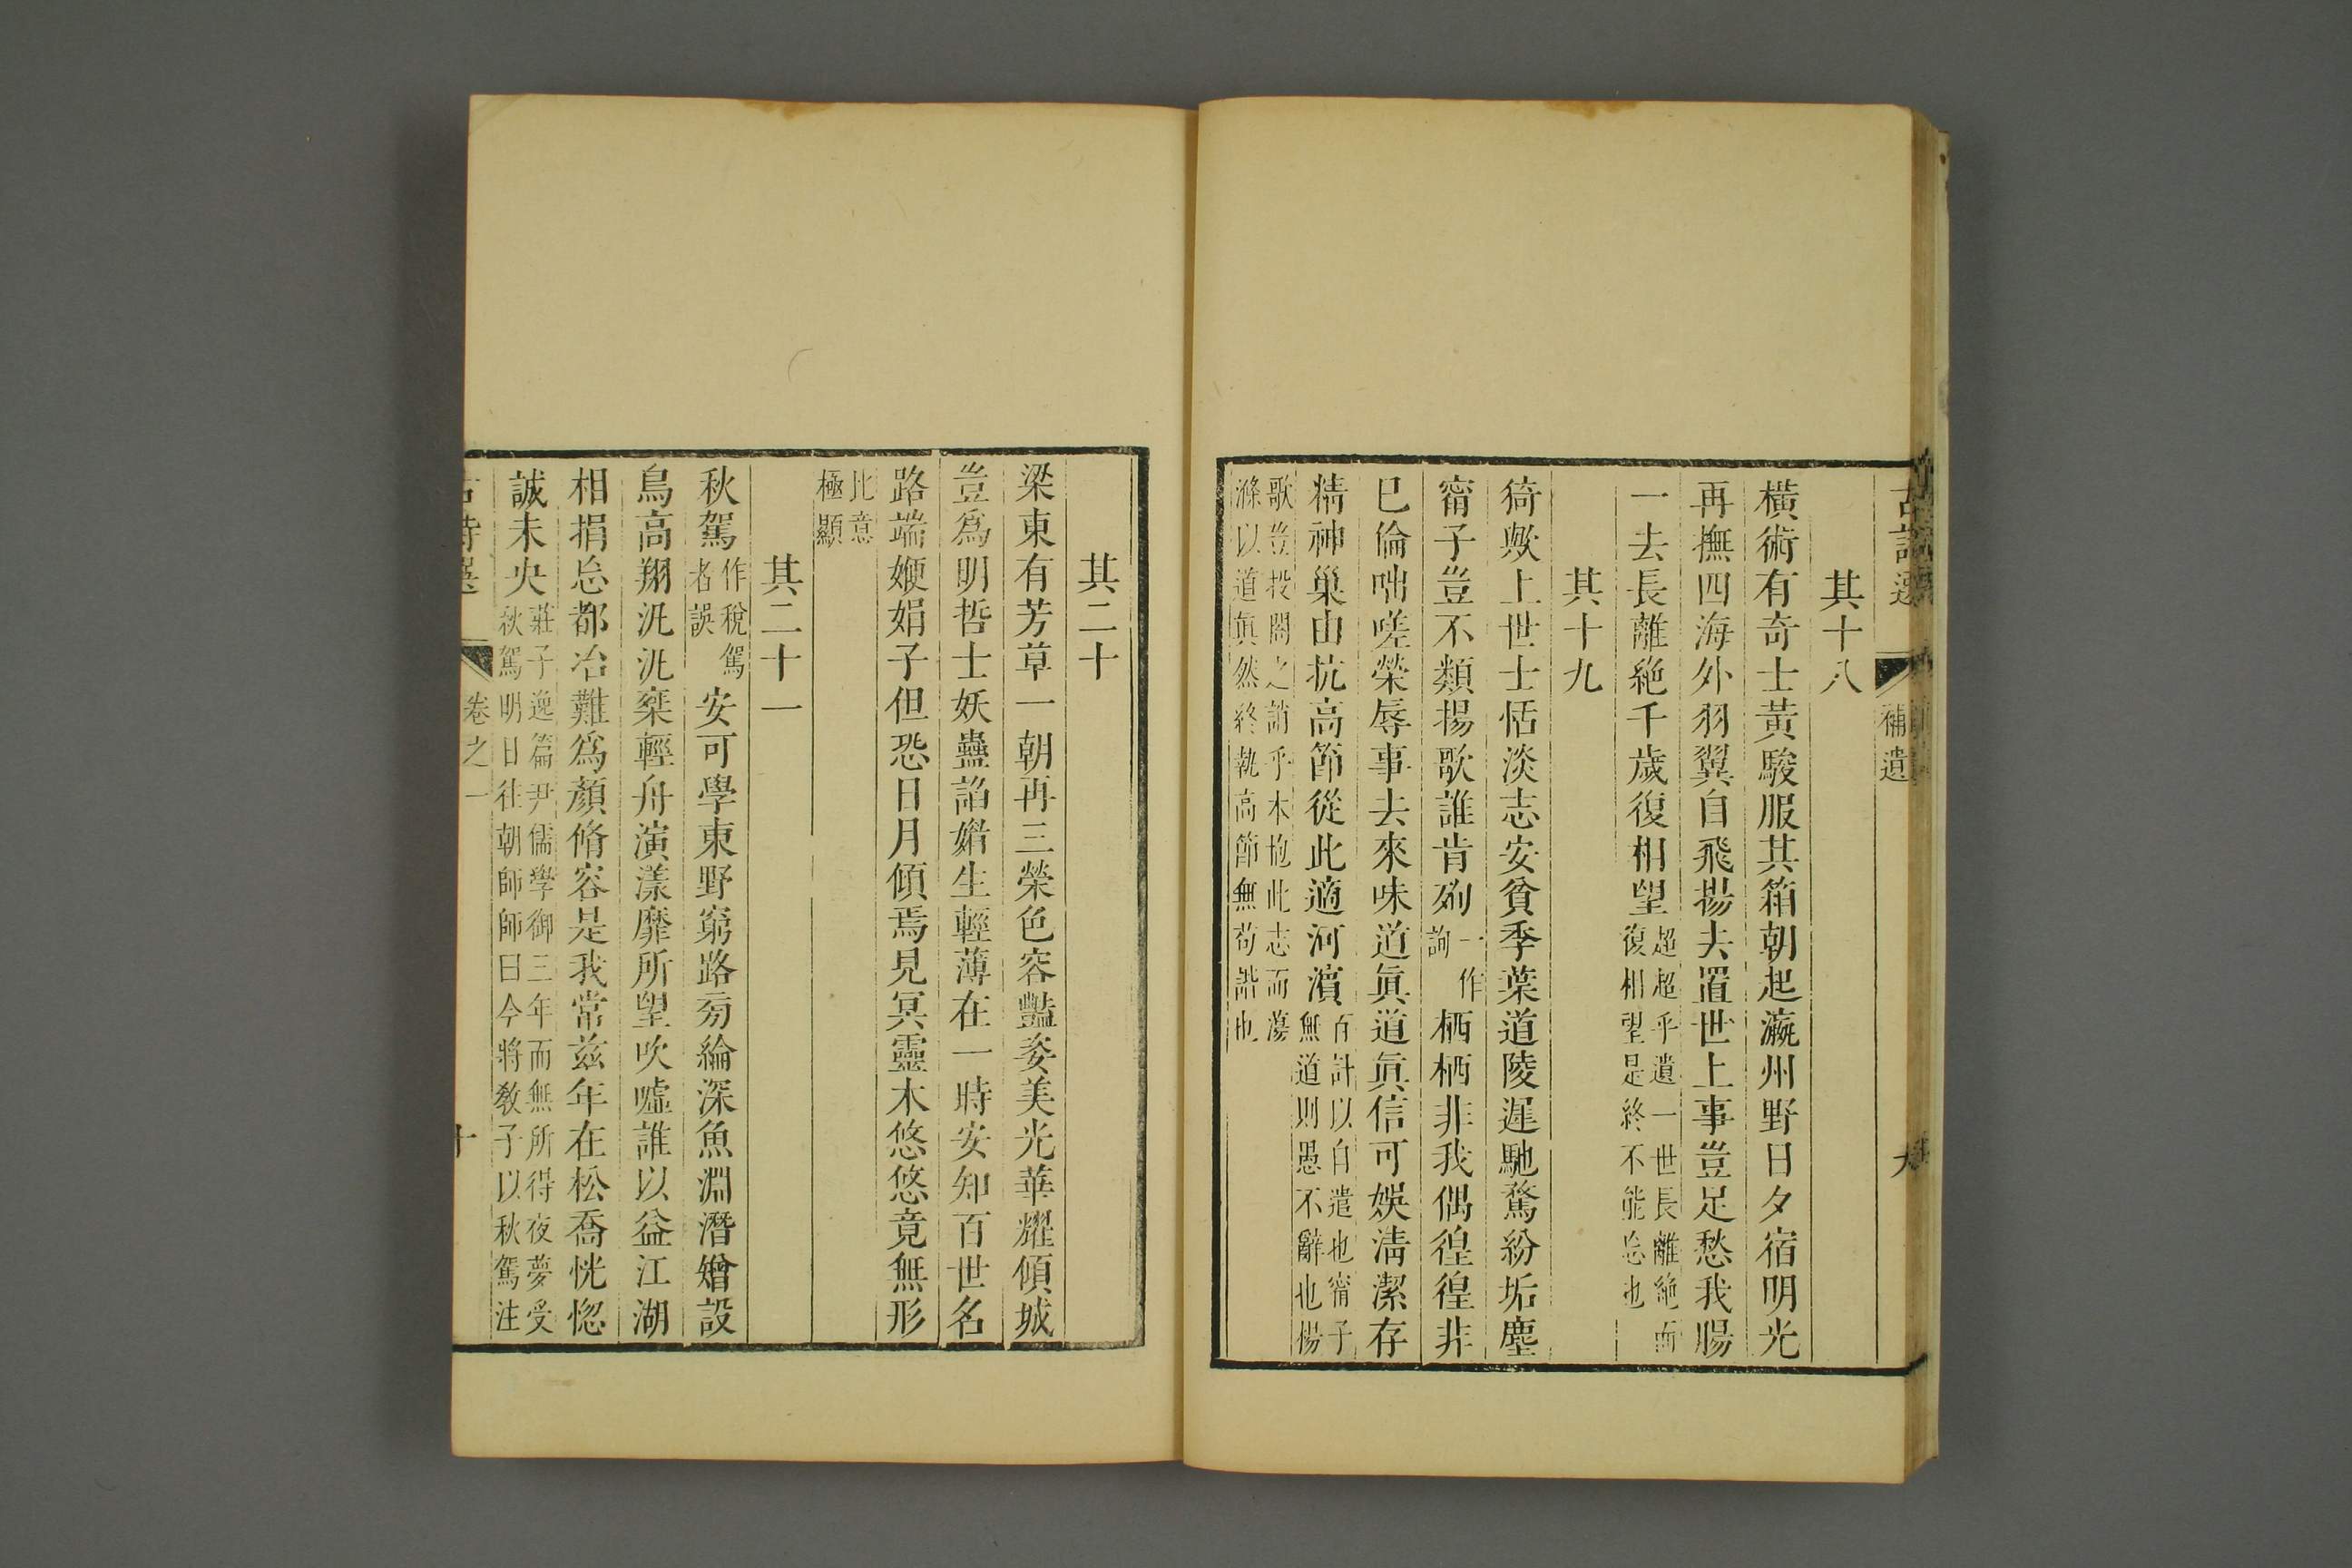 補遺
其十八
橫術有奇士黃駿服其箱朝起瀛州野日夕宿明光
再撫四海外羽翼自飛揚去置世上事豈足愁我腸
一去長離絶千歲復相望超超乎遺一世長離絶而復相望是終不能忘也
其十九
猗歟上世士恬淡志安貧季葉道陵遲馳騖紛垢塵
甯子豈不類揚歌誰肯殉一作詢栖栖非我偶徨徨非
巳倫咄嗟榮辱事去來味道眞道眞信可娛淸潔存
精神巢由抗高節從此適河濱百計以自遣也甯子無道則愚不辭也楊
歌豈投閣之誚乎本抱此志而蕩滌以道眞然終執高節無苟諧也
其二十
梁東有芳草一朝再三榮色容豔姿美光華耀傾城
豈爲明哲士妖蠱諂媚生輕薄在一時安知百世名
路端㛹娟子但恐日月傾焉見冥靈木悠悠竟無形
比意極顯
其二十一
秋駕作稅駕者誤安可學東野窮路旁綸深魚淵潛矰設
鳥高翔汎汎椉輕舟演漾靡所望吹噓誰以益江湖
相捐忘都冶難爲顏脩容是我常茲年在松喬恍惚
誠未央莊子逸篇尹儒學御三年而無所得夜夢受秋駕明日往朝師師曰今將教子以秋駕注
古詩選
卷之一
十